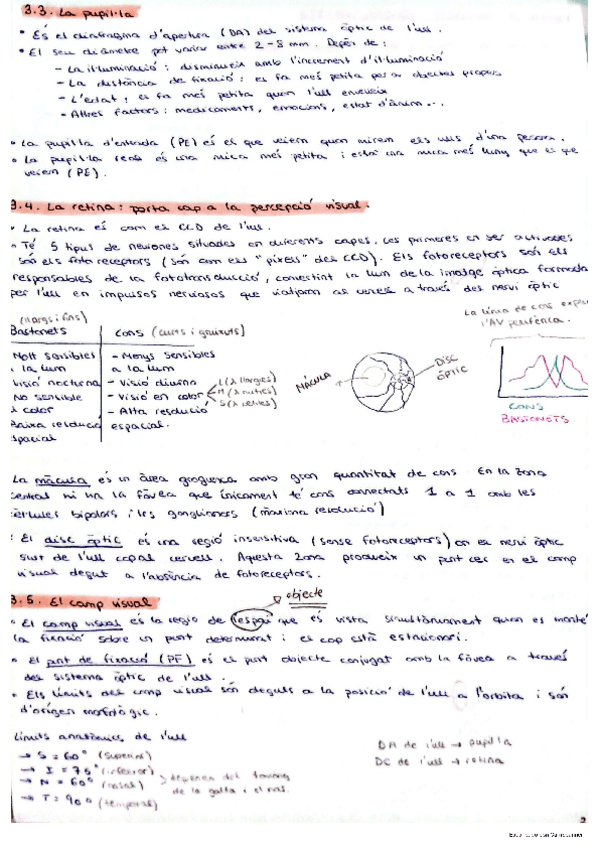 3.3. La pupil·la
• És el diafragma d'apertura (DA) del sistema òptic de l'ull.
• El seu diàmetre pot variar entre 2-8 mm. Depèn de:
- La il·luminació: disminueix amb l'increment d'il·luminació
- La distància de fixació: es fa més petita per a objectes propers
- L'edat: es fa més petita quan l'ull envelleix
- Altres factors: medicaments, emocions, estat d'ànim...
• La pupil·la d'entrada (PE) és el que veiem quan mirem els ulls d'una persona.
• La pupil·la real és una mica més petita i està una mica més lluny que el que
veiem (PE).
3.4. La retina: porta cap a la percepció visual.
• La retina és com el CCD de l'ull.
• Té 5 tipus de neurones situades en diferents capes. Les primeres en ser activades
són els fotoreceptors (són com els "píxels" del CCD). Els fotoreceptors són els
responsables de la fototransducció, convertint la llum de la imatge òptica formada
per l'ull en impulsos nerviosos que viatjaran al cervell a través del nervi òptic
(llargs i fins)
Bastonets
Cons (curts i gruixuts)
Molt sensibles
a la llum
Visió nocturna
No sensible
a color
Baixa resolució
espacial
- Menys sensibles
a la llum
- Visió diürna
- Visió en color
L (λ llargues)
M (λ mitges)
S (λ petites)
- Alta resolució
espacial.
MÀCULA
DISC
ÒPTIC
La línia de cons expli
l'AV perifèrica.
CONS
BASTONETS
La màcula és un àrea groguenca amb gran quantitat de cons. En la zona
central hi ha la fòvea que únicament té cons connectats 1 a 1 amb les
cèl·lules bipolars i les ganglionars (màxima resolució)
• El disc òptic és una regió insensitiva (sense fotoreceptors) on el nervi òptic
surt de l'ull cap al cervell. Aquesta zona produeix un punt cec en el camp
visual degut a l'absència de fotoreceptors.
3.5. El camp visual
objecte
• El camp visual és la regió de l'espai que és vista simultàniament quan es manté
la fixació sobre un punt determinat i el cap està estacionari.
• El punt de fixació (PF) és el punt objecte conjugat amb la fòvea a través
del sistema òptic de l'ull.
• Els límits del camp visual són deguts a la posició de l'ull a l'òrbita i són
d'origen morfològic.
Límits anatòmics de l'ull
→ S = 60° (superior)
→ I = 75° (inferior)
→ N = 60° (nasal)
→ T = 90° (temporal)
depenen del tamany
de la galta i el nas.
DA de l'ull → pupil·la
DC de l'ull → retina